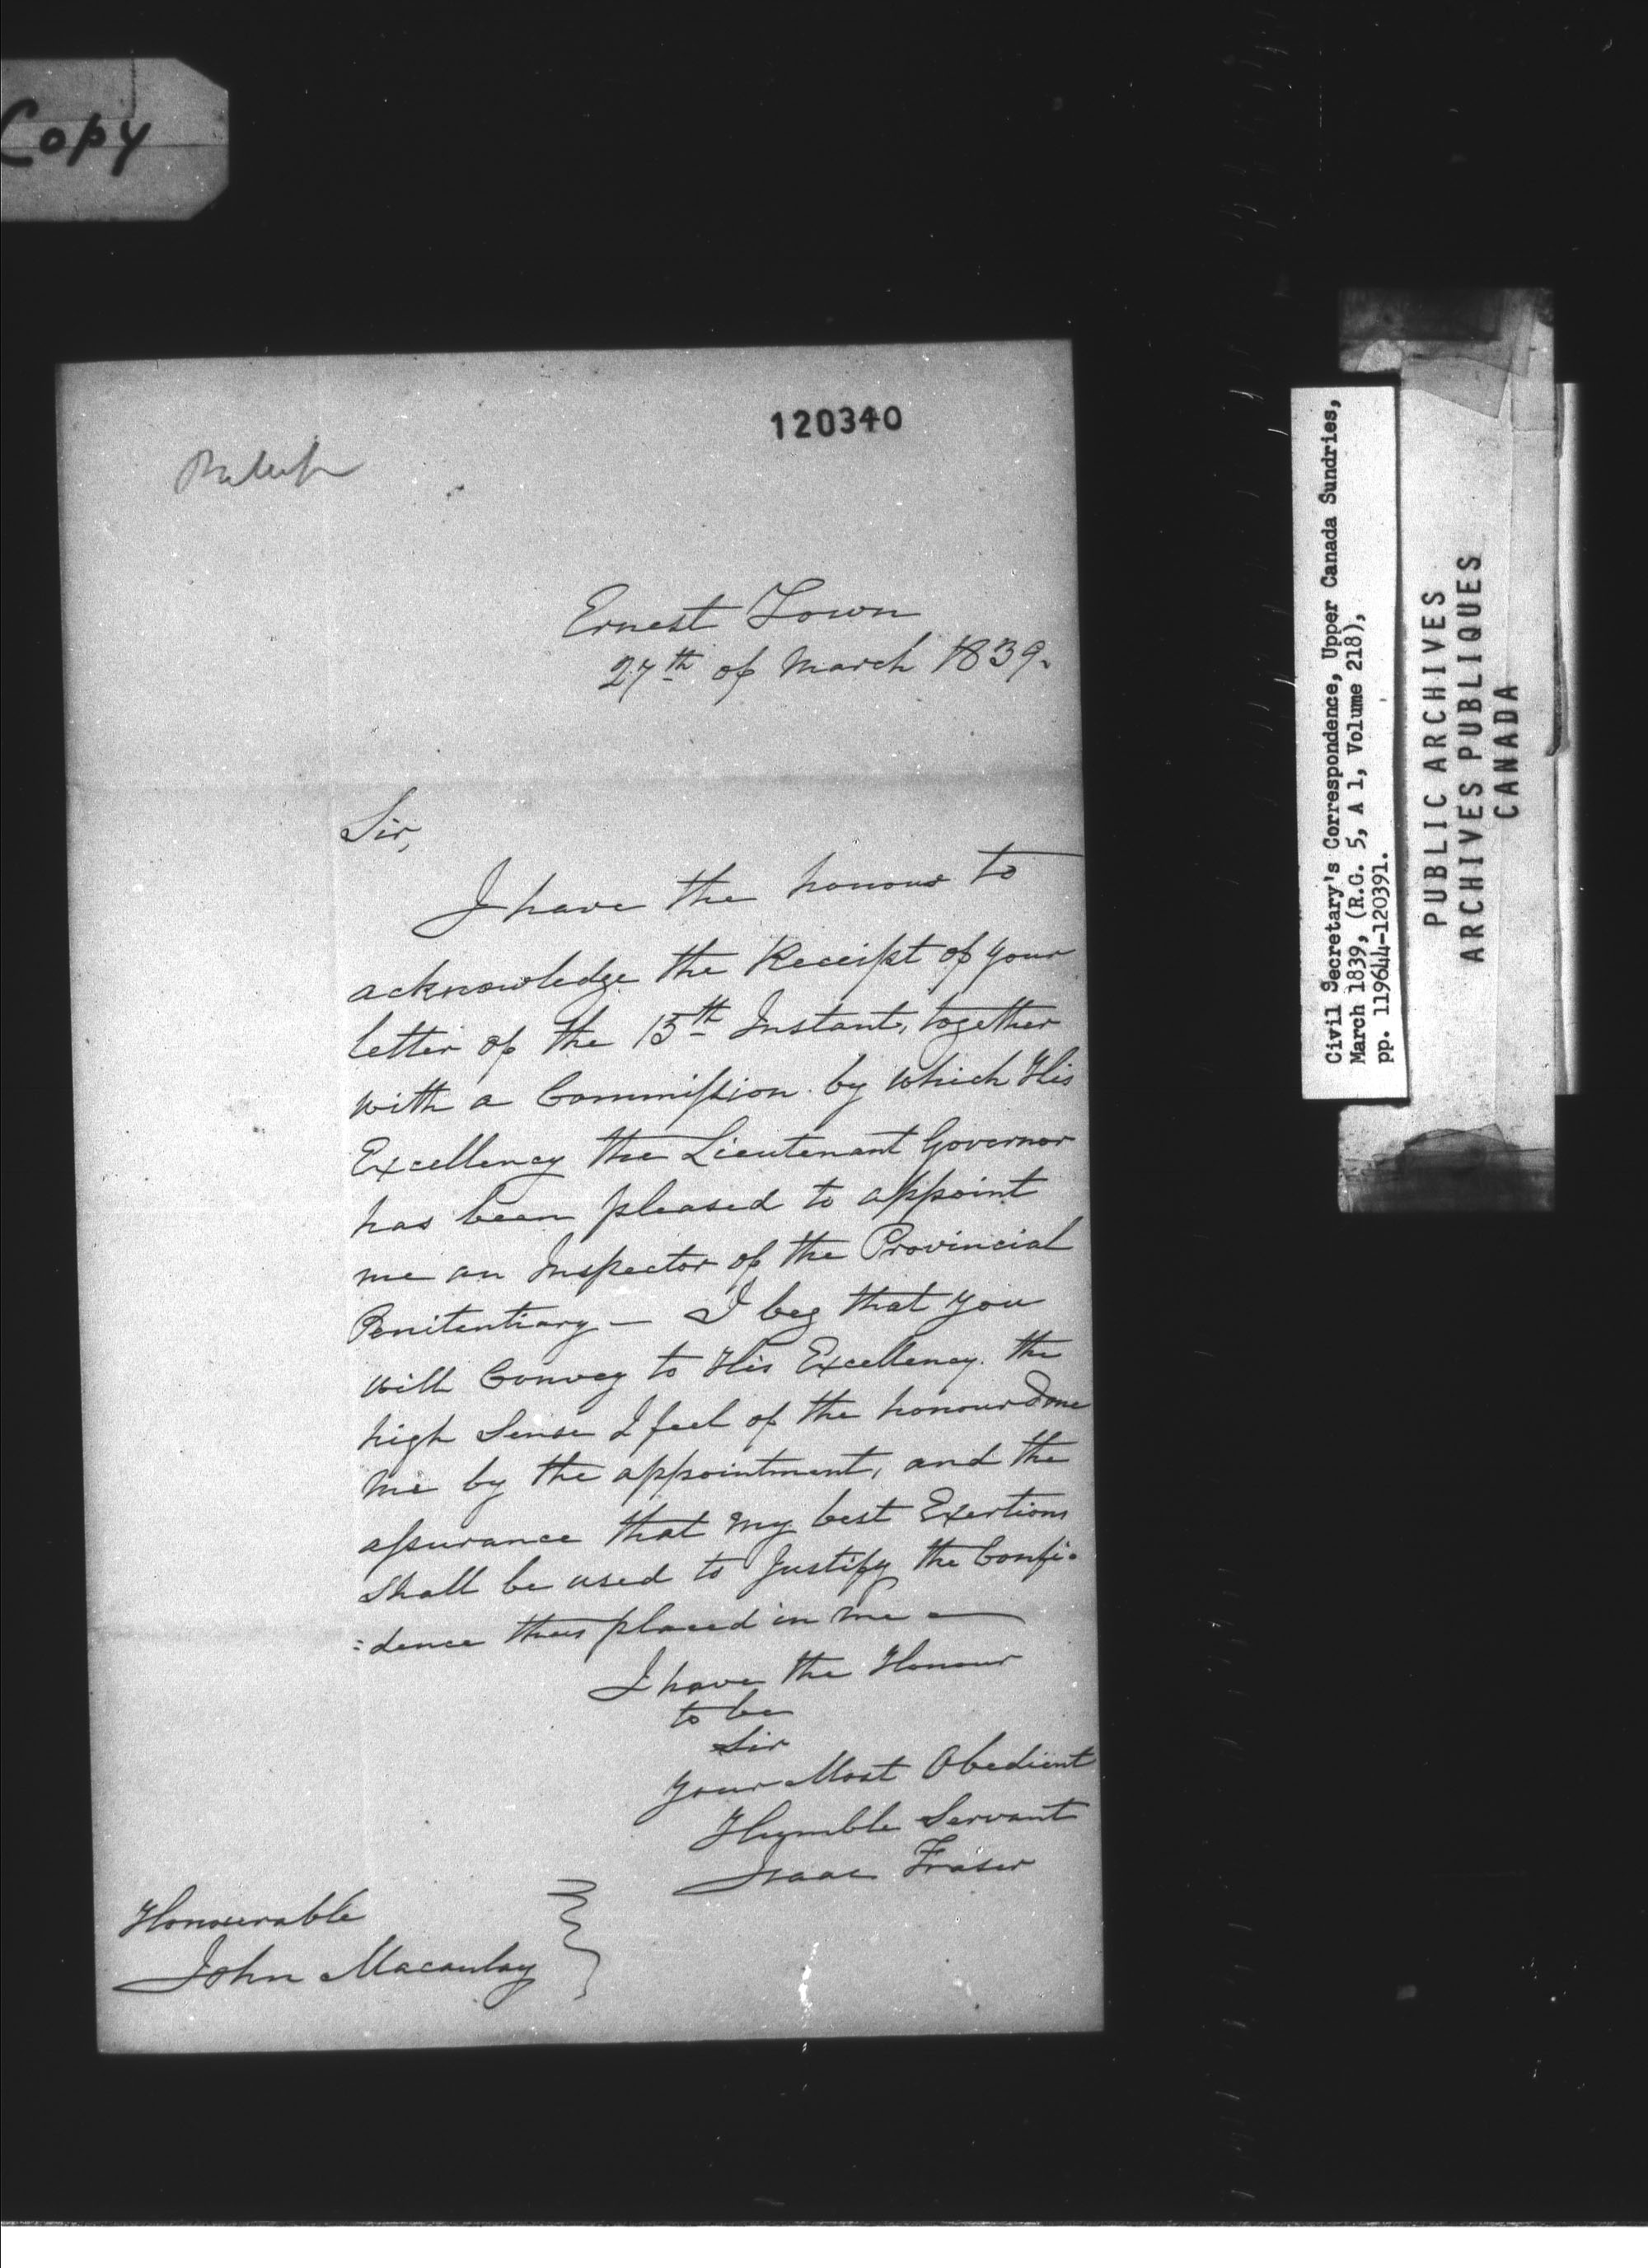 Copy
120340
Ernest Town
27th of March 1839.
Sir,
I have the honour to
acknowledge the Receipt of your
letter of the 15th Instant, together
with a Commission by which His
Excellency the Lieutenant Governor
has been pleased to appoint
me an Inspector of the Provincial
Penitentiary — I beg that you
will Convey to His Excellency the
high Sense I feel of the honour done
me by the appointment, and the
assurance that my best Exertions
shall be used to Justify the Confi=
=dence thus placed in me —
I have the Honour
to be
Sir
your Most Obedient
Humble Servant
Isaac Fraser
Honourable
John Macaulay
Civil Secretary's Correspondence, Upper Canada Sundries,
March 1839, (R.G. 5, A 1, Volume 218),
pp. 119644-120391.
PUBLIC ARCHIVES
ARCHIVES PUBLIQUES
CANADA